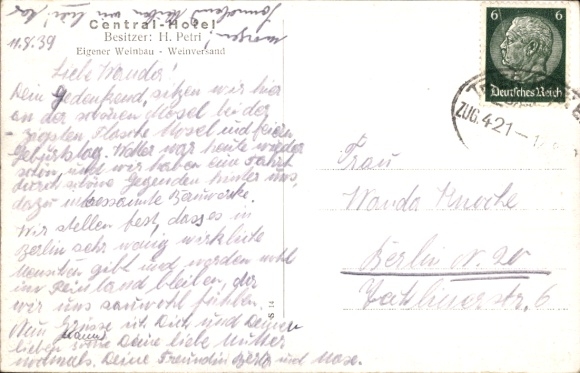 Central-Hotel
Besitzer: H. Petri
Eigener Weinbau - Weinversand
11.8.39
morgen!
Liebe Wanda!
Dein gedenkend, sitzen wir hier
an der schönen Mosel bei der
zigsten Flasche Mosel und feiern
Geburtstag. Wetter war heute wieder
schön, und wir haben eine Fahrt
durch schöne Gegenden hinter uns,
dazu interessante Bauwerke.
Wir stellen fest, dass es in
Berlin sehr wenig wirkliche
Menschen gibt und werden wohl
im Rheinland bleiben, da
wir uns sauwohl fühlen.
Nun Grüsse ich Dich und Deinen
lieben Mann sowie Deine liebe Mutter
nochmals. Deine Freundin und
6 6
Deutsches Reich
ZUG 421
Frau
Wanda Knoche
Berlin N. 20
6